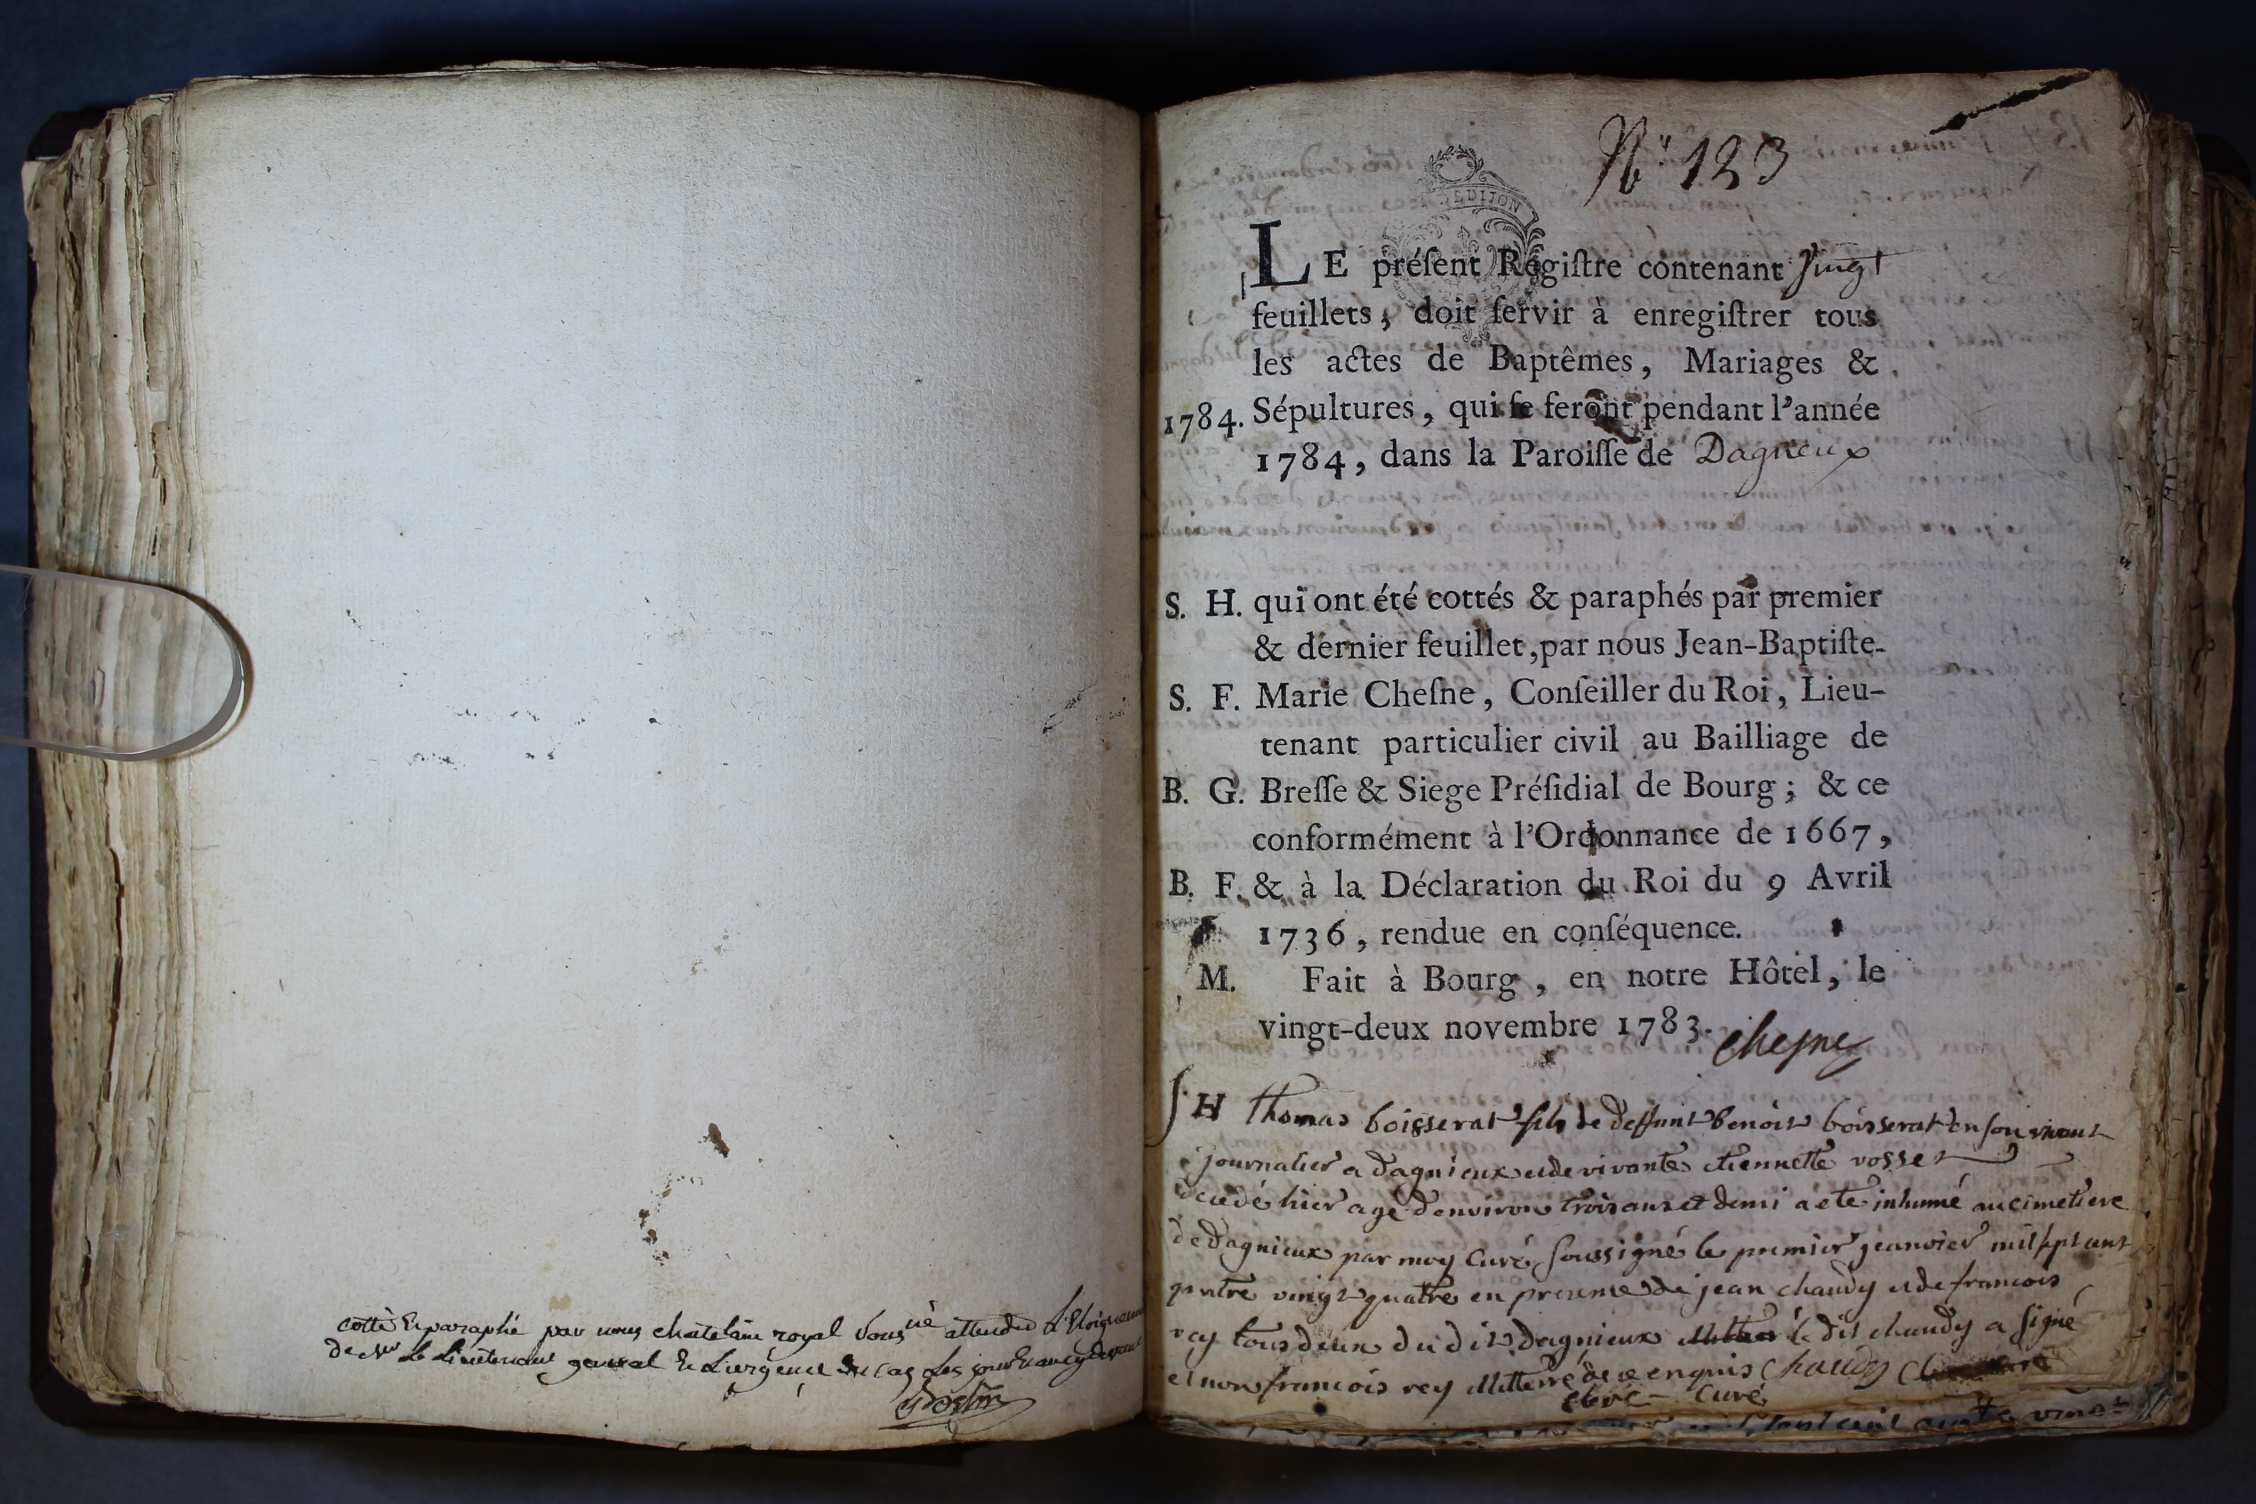 cotté & paraphé par nous chatelain royal sous né attendu L'Eloignement
de Mr Le Lieutenant general & L'urgence du cas Les jour & an cy devant
N.º 123
DIJON
LE préſent Regiſtre contenant vingt
feuillets, doit ſervir à enregiſtrer tous
les actes de Baptêmes, Mariages &
1784. Sépultures, qui ſe feront pendant l'année
1784, dans la Paroiſſe de Dagneux
S. H. qui ont été cottés & paraphés par premier
& dernier feuillet, par nous Jean-Baptiſte-
S. F. Marie Cheſne, Conſeiller du Roi, Lieu-
tenant particulier civil au Bailliage de
B. G. Breſſe & Siege Préſidial de Bourg; & ce
conformément à l'Ordonnance de 1667,
B. F. & à la Déclaration du Roi du 9 Avril
1736, rendue en conſéquence.
M. Fait à Bourg, en notre Hôtel, le
vingt-deux novembre 1783. Chesne
S. H thomas boisserat fils de deffunt benoit boisserat en son vivant
journalier a dagnieux et de vivante etiennette vosset
decedé hier agé d'environ trois ans et demi a eté inhumé au cimetiere
de dagnieux par moy curé soussigné le premier jeanvier mil sept cent
quatre vingt quatre en presence de jean chaudy et de francois
rey tous deux du dit dagnieux le dit chaudy a signé
et non francois rey illitterré de ce enquis Chaudy
curé